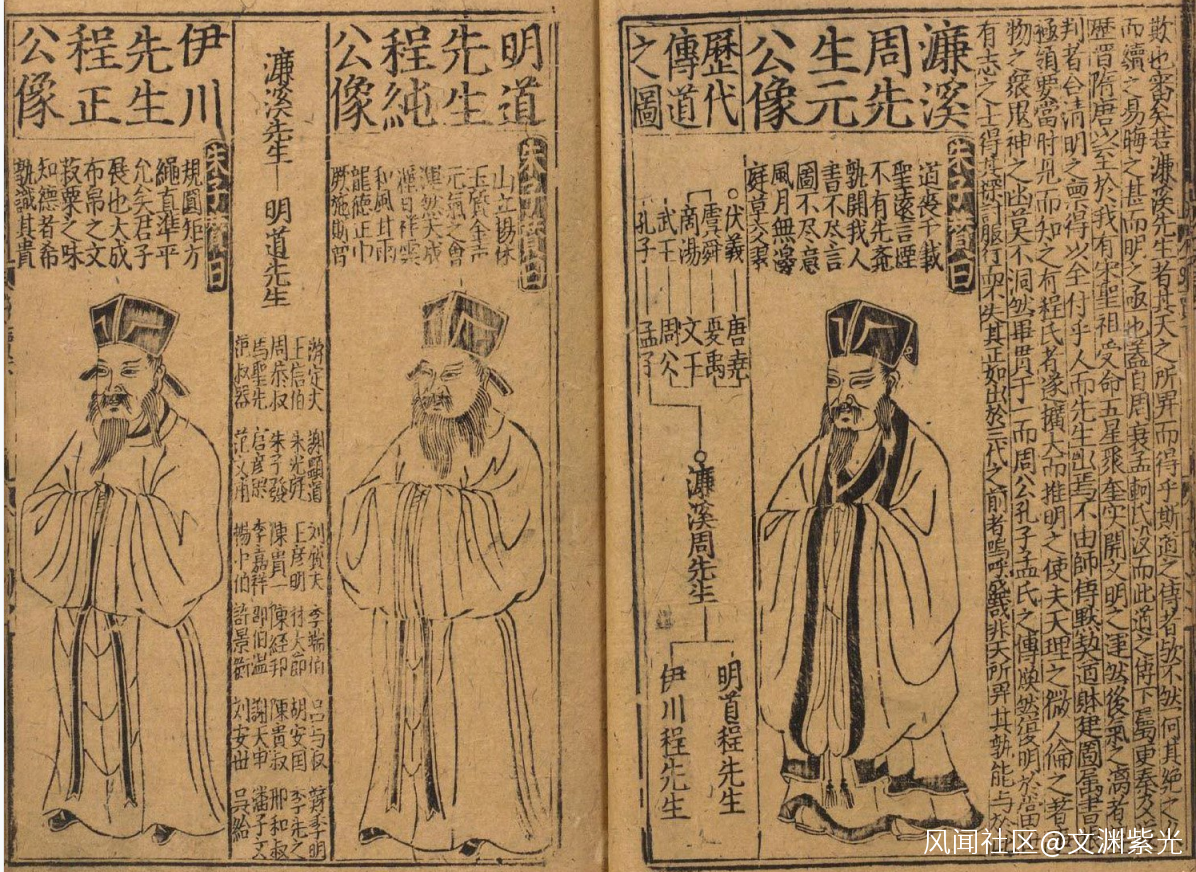 欺也審矣若濂溪先生者其天之所畀而得乎斯道之傳者歟不然何其絕之久
而續之易晦之甚而明之亟也蓋自周衰孟軻氏沒而此道之傳不屬更秦及漢
歷晉隋唐以至於我有宋聖祖受命五星聚奎實開文明之運然後氣之漓者
判者合清明之稟得以全付乎人而先生出焉不由師傳默契道體建圖屬書
極領要當時見而知之有程氏者遂擴大而推明之使夫天理之微人倫之著
物之衆鬼神之幽莫不洞然畢貫于一而周公孔子孟氏之傳煥然復明於當
有志之士得其探討服行而不失其正如出於三代之前者嗚呼盛哉非天所畀其孰能與於
濂溪
周先
生元
公像
朱子贊曰
道喪千載
聖遠言湮
不有先覺
孰開我人
書不盡言
圖不盡意
風月無邊
庭草交翠
歷代
傳道
之圖
伏羲 唐堯
虞舜 夏禹
商湯 文王
武王 周公
孔子 孟子
濂溪周先生
明道程先生
伊川程先生
明道
先生
程純
公像
朱子贊曰
山立揚休
玉質金聲
元氣之會
渾然天成
瑞日祥雲
和風甘雨
龍德正中
厥施斯普
濂溪先生 明道先生
游定夫 謝顯道 劉質夫 李端伯 呂与叔
王信伯 朱光庭 王彥明 胡安国 李先之
周恭叔 朱子發 陳貴一 陳經邦 陳貴叔 邢和叔
馬聖先 李嘉祥 邵伯温 謝天申 潘子文
范叔器 范文甫 楊中伯 許景衡 刘安世 吳給
伊川
先生
程正
公像
朱子贊曰
規圓矩方
繩直準平
允矣君子
展也大成
布帛之文
菽粟之味
知德者希
孰識其貴
风闻社区@文渊紫光